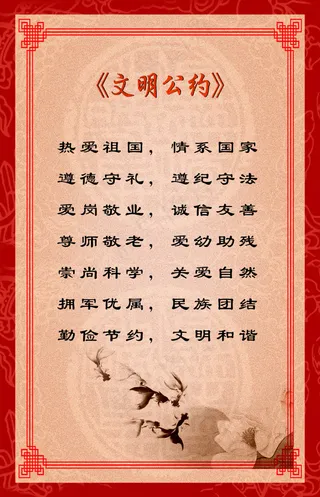 《文明公约》
热爱祖国，情系国家
遵德守礼，遵纪守法
爱岗敬业，诚信友善
尊师敬老，爱幼助残
崇尚科学，关爱自然
拥军优属，民族团结
勤俭节约，文明和谐